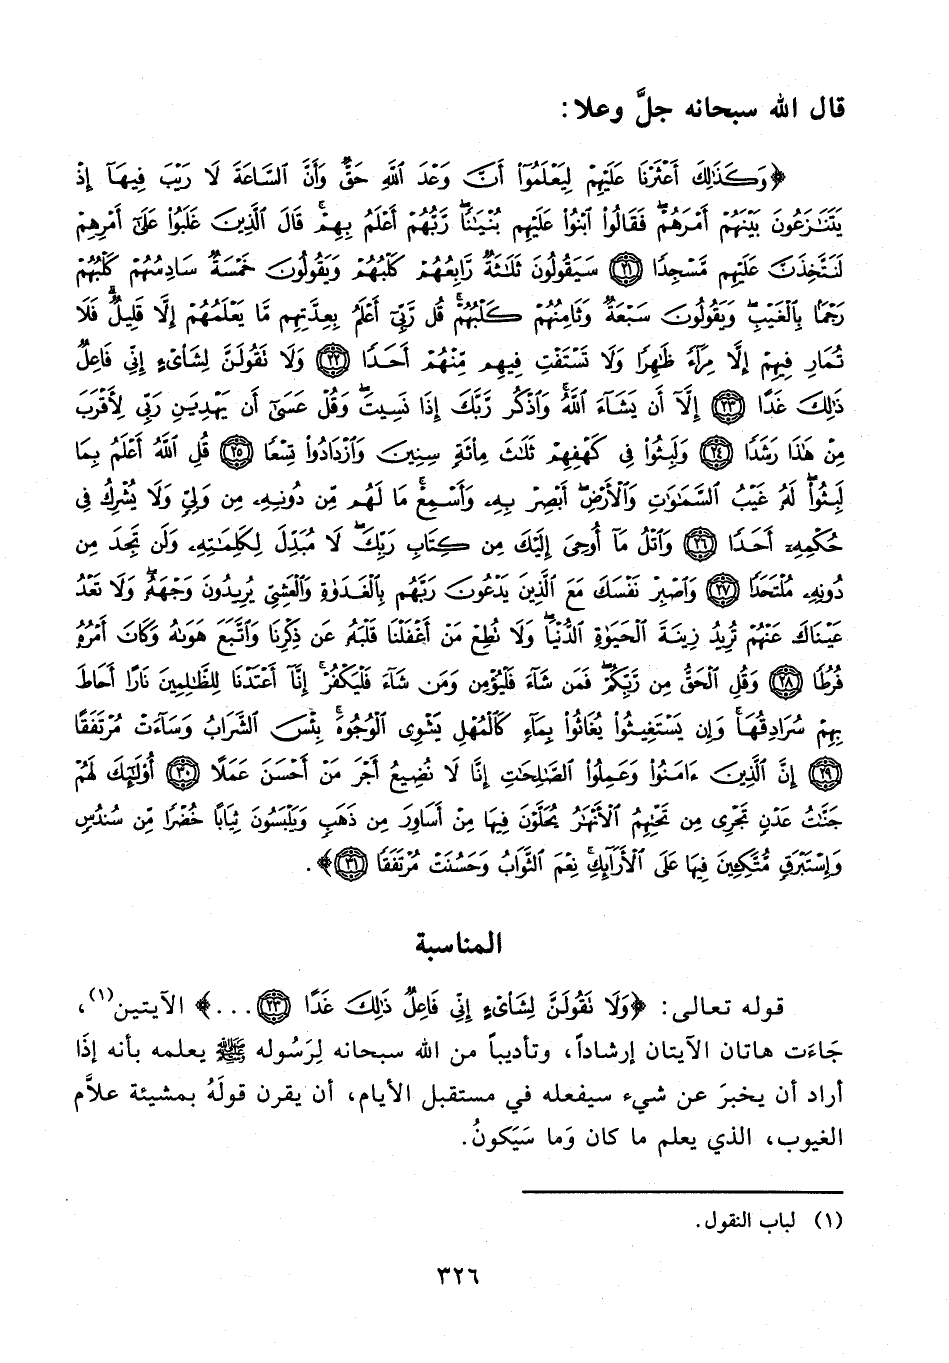 قال الله سبحانه جلَّ وعلا:
﴿وَكَذَٰلِكَ أَعْثَرْنَا عَلَيْهِمْ لِيَعْلَمُوٓا۟ أَنَّ وَعْدَ ٱللَّهِ حَقٌّ وَأَنَّ ٱلسَّاعَةَ لَا رَيْبَ فِيهَآ إِذْ
يَتَنَٰزَعُونَ بَيْنَهُمْ أَمْرَهُمْ ۖ فَقَالُوا۟ ٱبْنُوا۟ عَلَيْهِم بُنْيَٰنًا ۖ رَّبُّهُمْ أَعْلَمُ بِهِمْ ۚ قَالَ ٱلَّذِينَ غَلَبُوا۟ عَلَىٰٓ أَمْرِهِمْ
لَنَتَّخِذَنَّ عَلَيْهِم مَّسْجِدًا ﴿٢١﴾ سَيَقُولُونَ ثَلَٰثَةٌ رَّابِعُهُمْ كَلْبُهُمْ وَيَقُولُونَ خَمْسَةٌ سَادِسُهُمْ كَلْبُهُمْ
رَجْمًۢا بِٱلْغَيْبِ ۖ وَيَقُولُونَ سَبْعَةٌ وَثَامِنُهُمْ كَلْبُهُمْ ۚ قُل رَّبِّىٓ أَعْلَمُ بِعِدَّتِهِم مَّا يَعْلَمُهُمْ إِلَّا قَلِيلٌ ۗ فَلَا
تُمَارِ فِيهِمْ إِلَّا مِرَآءً ظَٰهِرًا وَلَا تَسْتَفْتِ فِيهِم مِّنْهُمْ أَحَدًا ﴿٢٢﴾ وَلَا تَقُولَنَّ لِشَا۟ىْءٍ إِنِّى فَاعِلٌ
ذَٰلِكَ غَدًا ﴿٢٣﴾ إِلَّآ أَن يَشَآءَ ٱللَّهُ ۚ وَٱذْكُر رَّبَّكَ إِذَا نَسِيتَ ۖ وَقُلْ عَسَىٰٓ أَن يَهْدِيَنِ رَبِّى لِأَقْرَبَ
مِنْ هَٰذَا رَشَدًا ﴿٢٤﴾ وَلَبِثُوا۟ فِى كَهْفِهِمْ ثَلَٰثَ مِا۟ئَةٍ سِنِينَ وَٱزْدَادُوا۟ تِسْعًا ﴿٢٥﴾ قُلِ ٱللَّهُ أَعْلَمُ بِمَا
لَبِثُوا۟ ۖ لَهُۥ غَيْبُ ٱلسَّمَٰوَٰتِ وَٱلْأَرْضِ ۖ أَبْصِرْ بِهِۦ وَأَسْمِعْ ۚ مَا لَهُم مِّن دُونِهِۦ مِن وَلِىٍّ وَلَا يُشْرِكُ فِى
حُكْمِهِۦٓ أَحَدًا ﴿٢٦﴾ وَٱتْلُ مَآ أُوحِىَ إِلَيْكَ مِن كِتَابِ رَبِّكَ ۖ لَا مُبَدِّلَ لِكَلِمَٰتِهِۦ وَلَن تَجِدَ مِن
دُونِهِۦ مُلْتَحَدًا ﴿٢٧﴾ وَٱصْبِرْ نَفْسَكَ مَعَ ٱلَّذِينَ يَدْعُونَ رَبَّهُم بِٱلْغَدَوٰةِ وَٱلْعَشِىِّ يُرِيدُونَ وَجْهَهُۥ ۖ وَلَا تَعْدُ
عَيْنَاكَ عَنْهُمْ تُرِيدُ زِينَةَ ٱلْحَيَوٰةِ ٱلدُّنْيَا ۖ وَلَا تُطِعْ مَنْ أَغْفَلْنَا قَلْبَهُۥ عَن ذِكْرِنَا وَٱتَّبَعَ هَوَىٰهُ وَكَانَ أَمْرُهُۥ
فُرُطًا ﴿٢٨﴾ وَقُلِ ٱلْحَقُّ مِن رَّبِّكُمْ ۖ فَمَن شَآءَ فَلْيُؤْمِن وَمَن شَآءَ فَلْيَكْفُرْ ۚ إِنَّآ أَعْتَدْنَا لِلظَّٰلِمِينَ نَارًا أَحَاطَ
بِهِمْ سُرَادِقُهَا ۚ وَإِن يَسْتَغِيثُوا۟ يُغَاثُوا۟ بِمَآءٍ كَٱلْمُهْلِ يَشْوِى ٱلْوُجُوهَ ۚ بِئْسَ ٱلشَّرَابُ وَسَآءَتْ مُرْتَفَقًا
﴿٢٩﴾ إِنَّ ٱلَّذِينَ ءَامَنُوا۟ وَعَمِلُوا۟ ٱلصَّٰلِحَٰتِ إِنَّا لَا نُضِيعُ أَجْرَ مَنْ أَحْسَنَ عَمَلًا ﴿٣٠﴾ أُو۟لَٰٓئِكَ لَهُمْ
جَنَّٰتُ عَدْنٍ تَجْرِى مِن تَحْتِهِمُ ٱلْأَنْهَٰرُ يُحَلَّوْنَ فِيهَا مِنْ أَسَاوِرَ مِن ذَهَبٍ وَيَلْبَسُونَ ثِيَابًا خُضْرًا مِّن سُندُسٍ
وَإِسْتَبْرَقٍ مُّتَّكِـِٔينَ فِيهَا عَلَى ٱلْأَرَآئِكِ ۚ نِعْمَ ٱلثَّوَابُ وَحَسُنَتْ مُرْتَفَقًا ﴿٣١﴾﴾.
المناسبة
قوله تعالى: ﴿وَلَا تَقُولَنَّ لِشَا۟ىْءٍ إِنِّى فَاعِلٌ ذَٰلِكَ غَدًا ﴿٢٣﴾...﴾ الآيتين(١)،
جَاءَت هاتان الآيتان إرشاداً، وتأديباً من الله سبحانه لِرَسُوله ﷺ يعلمه بأنه إذَا
أراد أن يخبرَ عن شيء سيفعله في مستقبل الأيام، أن يقرن قولَهُ بمشيئة علاَّم
الغيوب، الذي يعلم ما كان وَما سَيَكونُ.
(١) لباب النقول.
٣٢٦